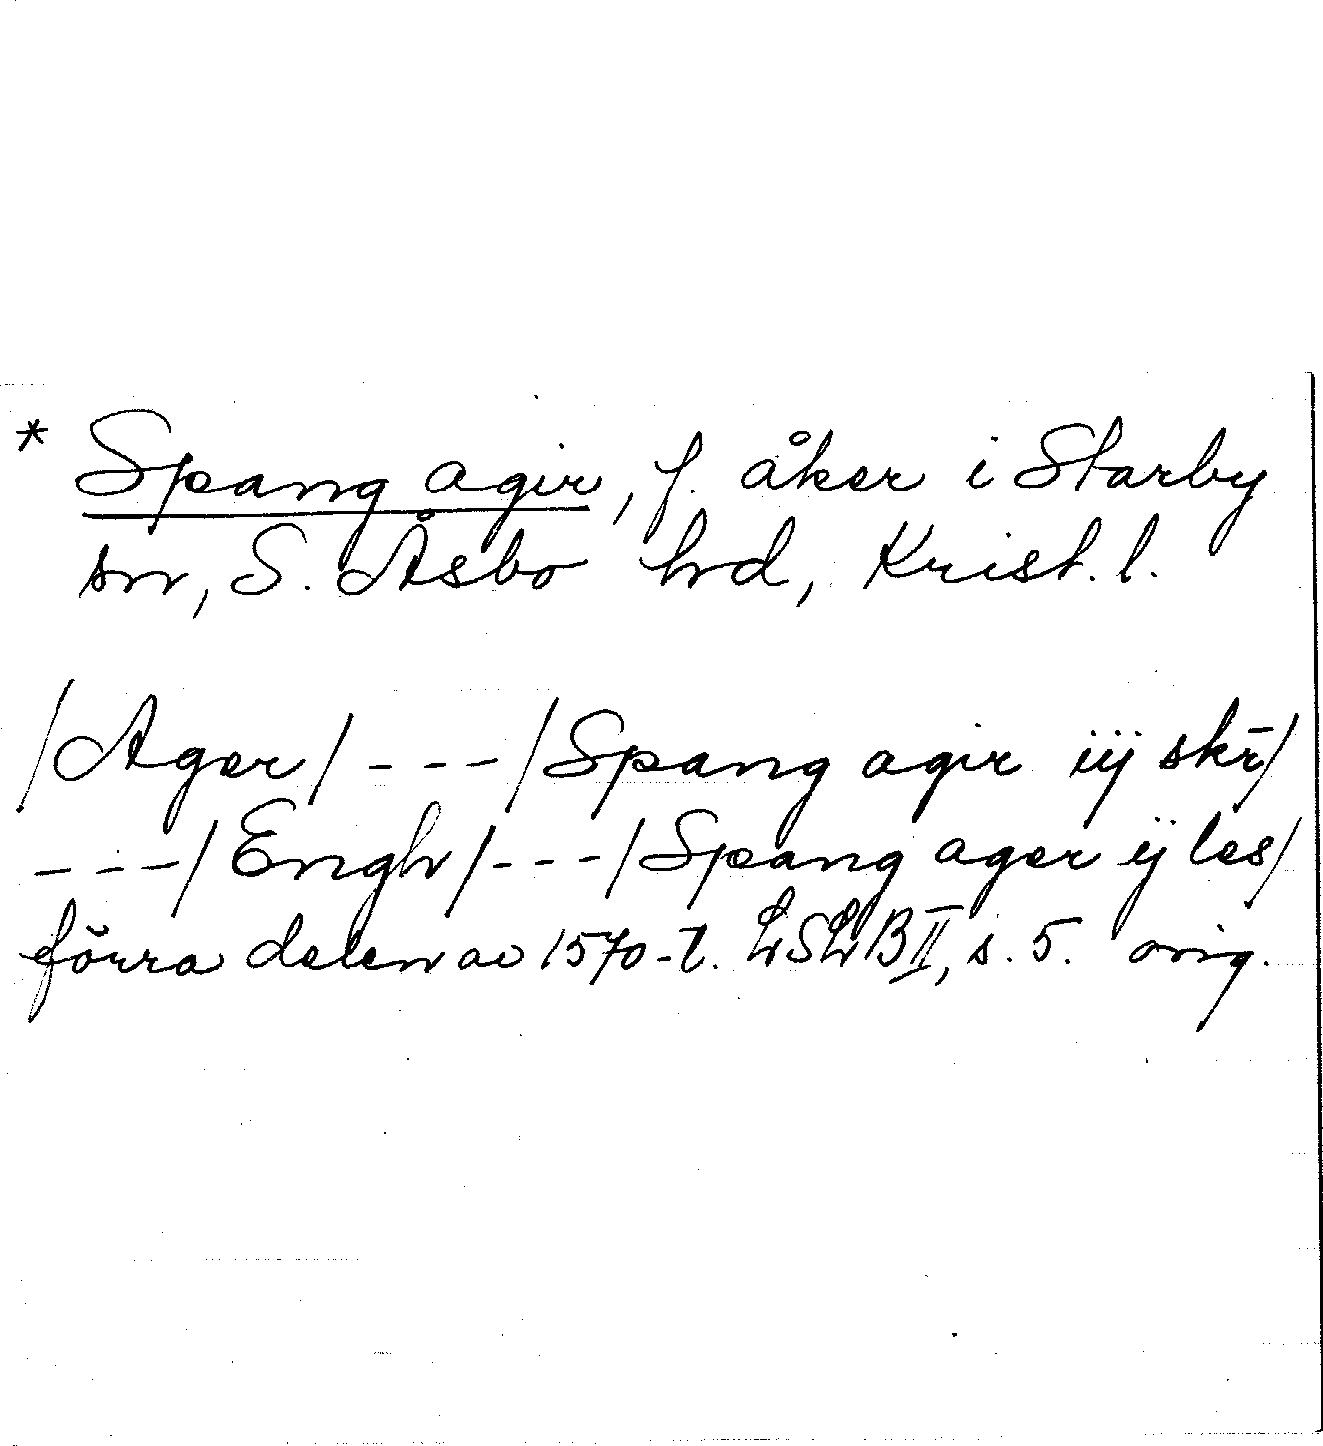 * Spang agir, f. åker i Starby
sn, S. Åsbo hd, Krist. l.
/Ager/ - - - /Spang agir iij skr̄/
- - - /Engh/ - - - /Spang ager ij les/
förra delen av 1570-t. LSLB II, s. 5. orig.